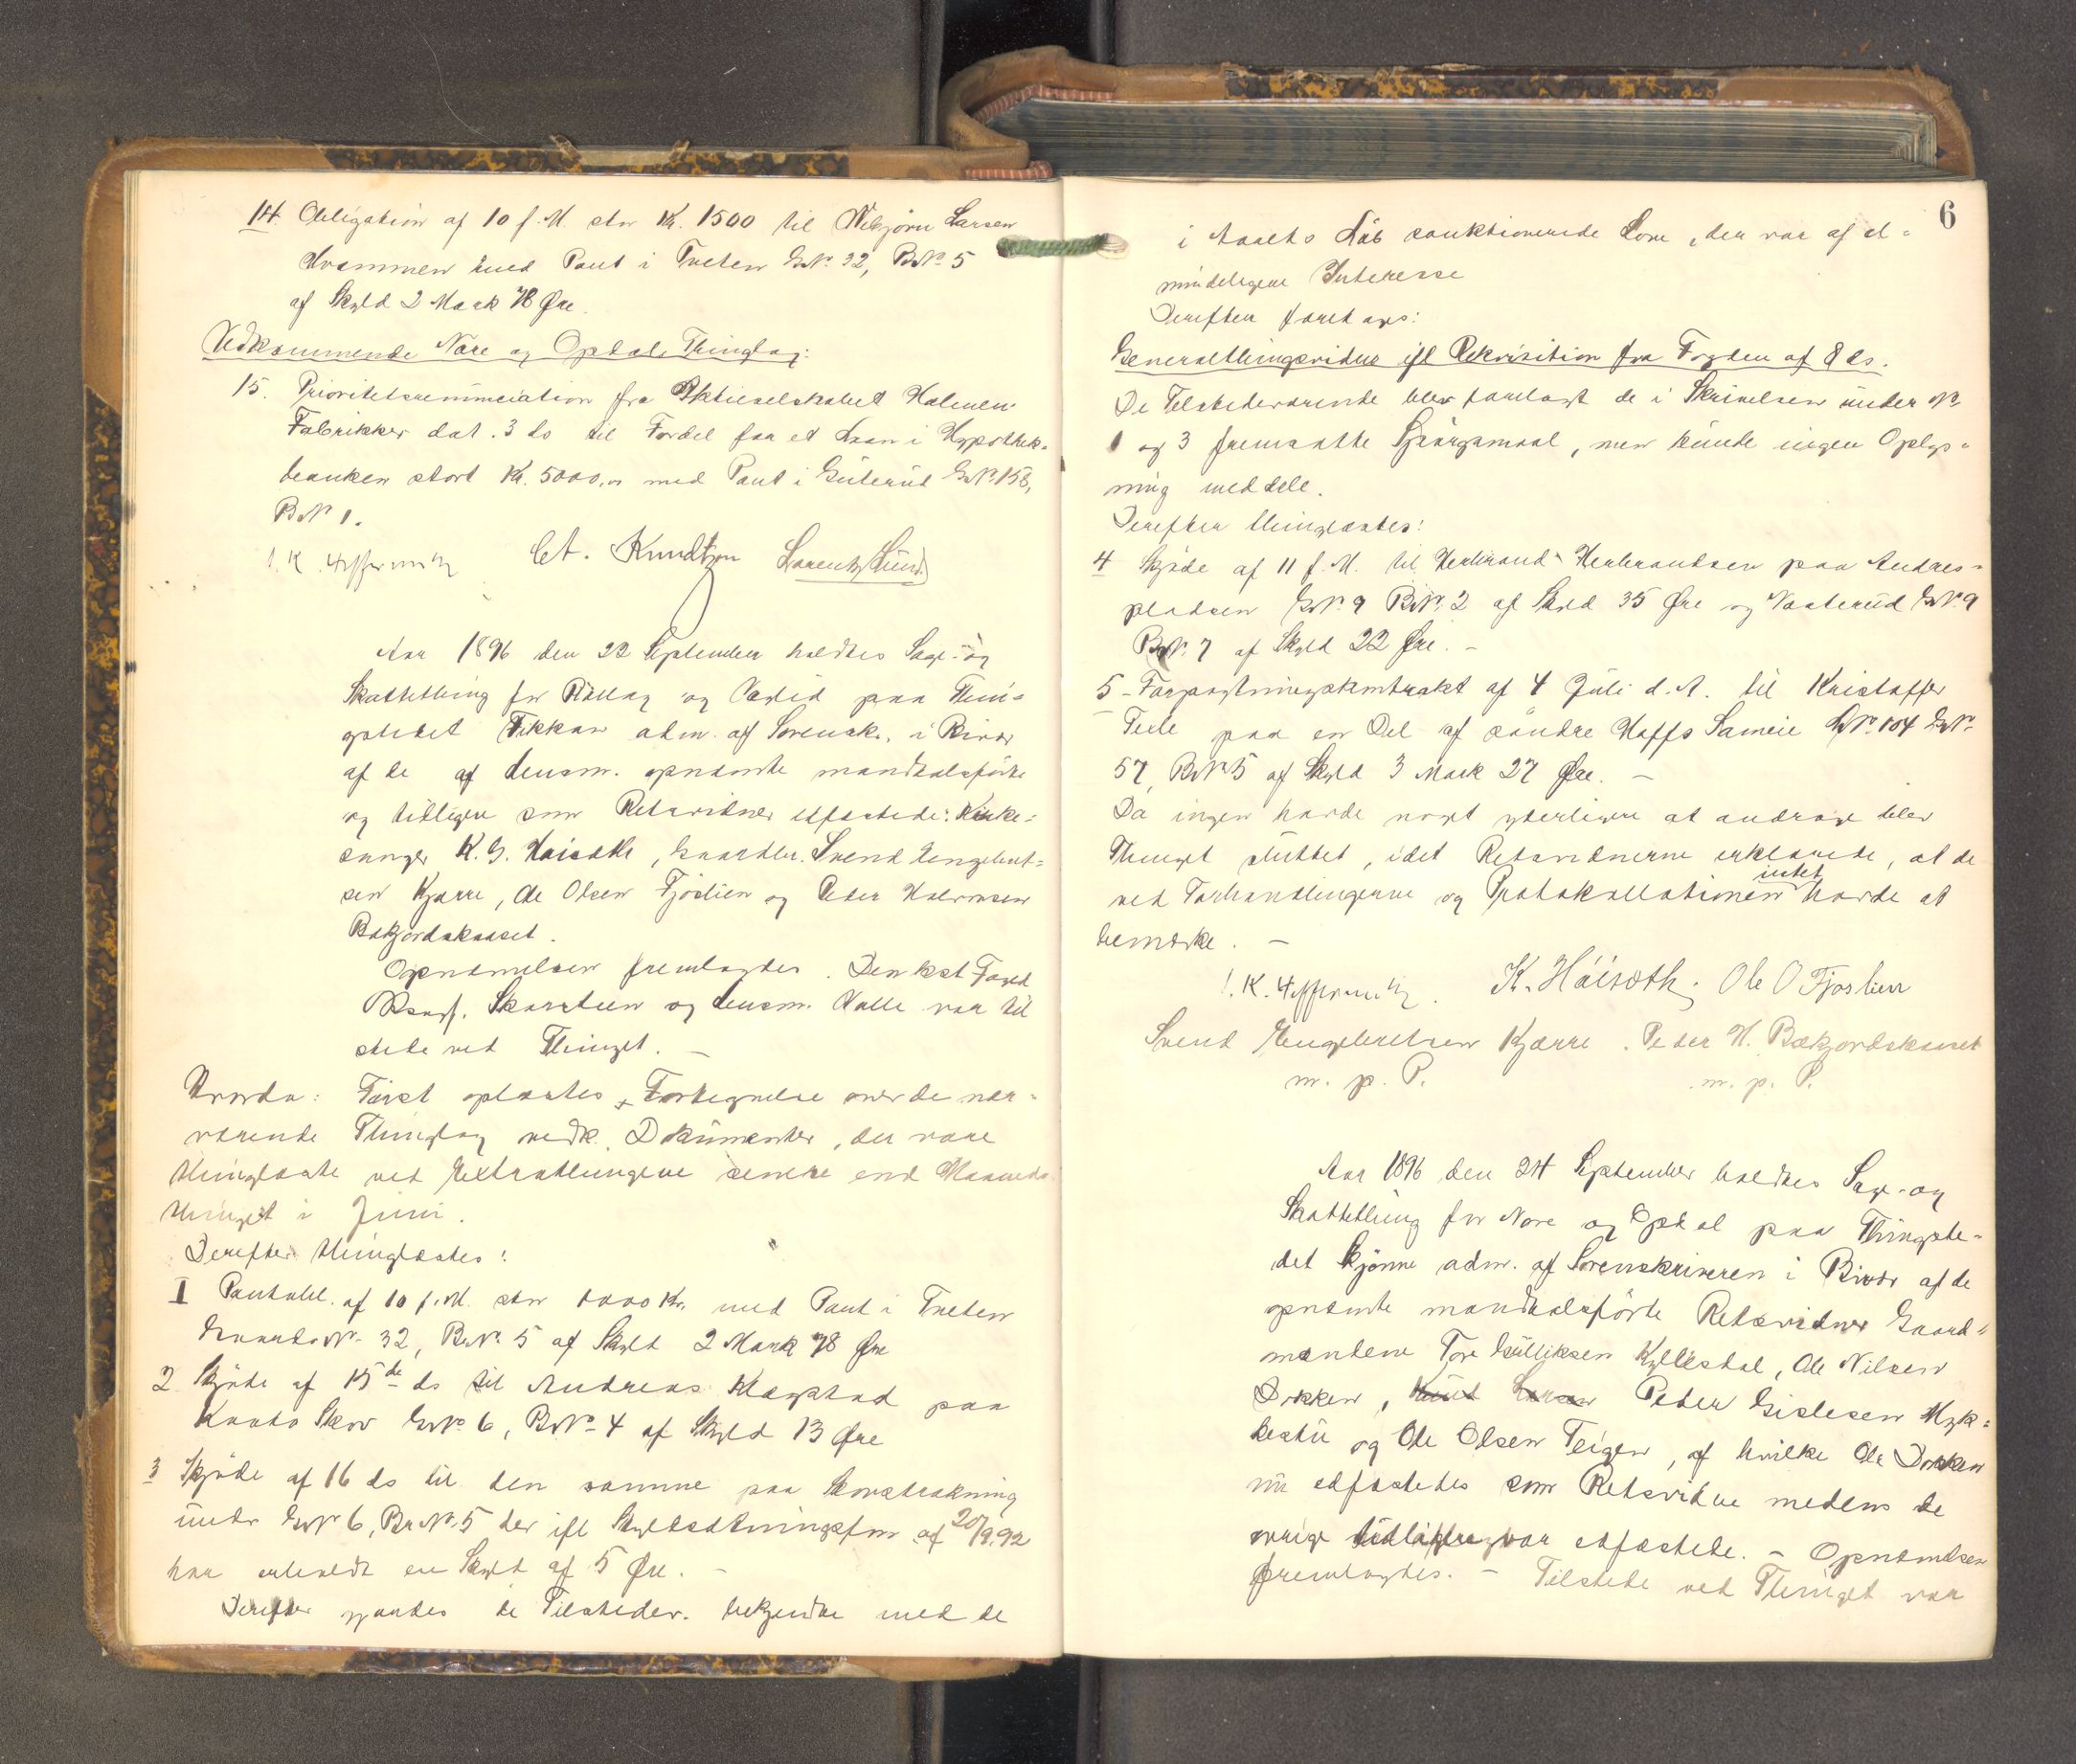 14. Obligation af 10 f. M. stor Kr. 1500 til Nebjörn Larsen
Hvammen med Pant i Treten G.N. 32, B.N. 5
af Skyld 2 Mark 78 Øre.
Vedkommende Nore og Opdals Thinglag:
15. Prioritetsrenunciation fra Aktieselskabet Holmen
Fabrikker dat. 3 ds til Fordel for et Laan i Hypothek-
banken stort Kr. 5000,00 med Pant i Guterud G.N. 158,
B.N. 1.
Ct. Knudtzon Lorentz Lund
Aar 1896 den 22 September holdtes Sage- og
Skattething for Rollag og Veglid paa Thin-
gstedet Fikkan adm. af Sorensk. i
af de af Lensm. opnævnte mandtalsförte
og tidligere som Retsvidner edfæstede: Kirke-
sanger K. G. Haisæth, Gaardbr. Svend Engebret-
sen Kjærre, Ole Olsen Fjöslien og Peder Halvorsen
Bækjordskaaset.
Opnævnelsen fremlagdes. Den kst Foged
Skarsteen og Lensm. Valle var til
stede ved Thinget. –
Hvorda: Först oplæstes Fortegnelse over de nær-
værende Thinglag vedk. Dokumenter, der vare
thinglæste ved Extrathingene senere end Maaneds
thinget i Juni.
Derefter thinglæstes:
1 Pantobl. af 10 f. M. stor 1000 Kr. med Pant i Treten
Gaards N. 32, B.N. 5 af Skyld 2 Mark 78 Øre
2 Skjöde af 15de ds til Andreas Klegstad paa
Kaats Skov G.No 6, B.No 4 af Skyld 13 Øre
3 Skjöde af 16 ds til den samme paa Skovstrækning
under G.No 6, Br.No 5 der ifl Skyldsætningsfor. af 20/9.92
har erholdt en Skyld af 5 Øre. –
Derefter gjordes de Tilstedev. bekjendte med de
6
i Aarets Löb sanktionerede Love, der var af al-
mindeligere Interesse
Derefter foretoges:
Generalthingsvidne ifl Rekvisition fra Fogden af 8 ds.
De Tilstedeværende blev forelagt de i Skrivelsen under N
1 og 3 fremsatte Spörgsmaal, men kunde ingen Oplys-
ning meddele.
Derefter thinglæstes:
4 Skjöde af 11 f. M. til Herbrand Herbrandsen paa Andres-
pladsen G.N. 9 B.N. 2 af Skyld 35 Øre og Vaaterud G.N. 9
B.N. 7 af Skyld 22 Øre. –
5 – Forpagtningskontrakt af 4 Juli d. A. til Kristoffer
Teile paa en Del af söndre Hoffs Sameie L.N. 104 G.N.
57, B.N. 5 af Skyld 3 Mark 27 Øre. –
Da ingen havde noget yderligere at andrage blev
Thinget sluttet, idet Retsvidnerne erklærede, at de
ved Forhandlingerne og Protokollationen intet havde at
bemærke. –
K. Háisæth. Ole O Fjøslien
Svend Engebretsen Kjærre. Peder H. Bækjordskaaset
m. p. P. m. p. P.
Aar 1896 den 24 September holdtes Sage- og
Skattething for Nore og Opdal paa Thingste-
det Skjönne adm. af Sorenskriveren i af de
opnævnte mandtalsförte Retsvidner Gaard-
mændene Tore Gulliksen Kyllesdal, Ole Nilsen
Dokken, Knut Larsen Peder Gislesen Myk-
bestu og Ole Olsen Teigen, af hvilke Ole Dokken
nu edfæstedes som Retsvidne medens de
övrige tidligere var edfæstede. – Opnævnelsen
fremlagdes. – Tilstede ved Thinget var